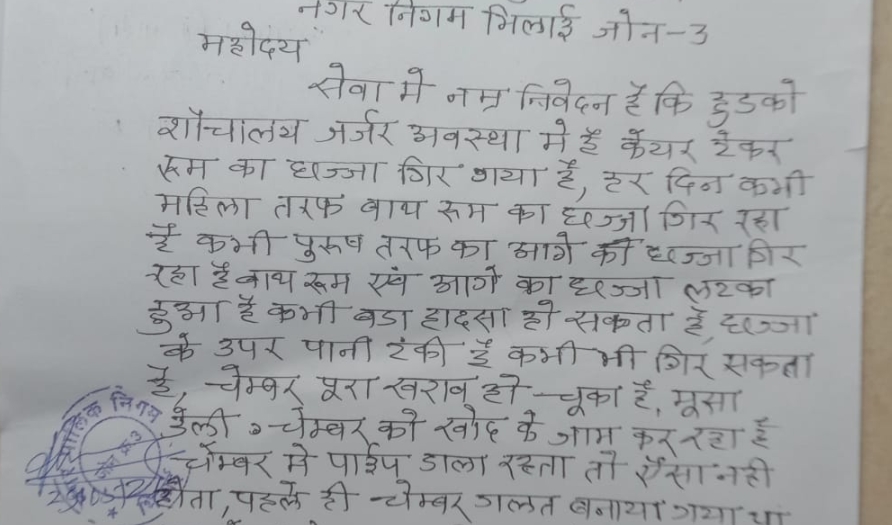 नगर निगम भिलाई जोन-3
महोदय
सेवा मे नम्र निवेदन है कि हुडको
शौचालय जर्जर अवस्था मे है केयर टेकर
रूम का छज्जा गिर गया है, हर दिन कभी
महिला तरफ बाथ रूम का छज्जा गिर रहा
है कभी पुरुष तरफ का आगे की छज्जा गिर
रहा है बाथ रूम एवं आगे का छज्जा लटका
हुआ है कभी बडा हादसा हो सकता है, छज्जा
के उपर पानी टंकी है कभी भी गिर सकता
है, चेम्बर पूरा खराब हो चूका है, मूसा
डेली चेम्बर को खोद के जाम कर रहा है
चेम्बर मे पाईप डाला रहता तो ऐसा नही
होता, पहले ही चेम्बर गलत बनाया गया था
पालिक निगम